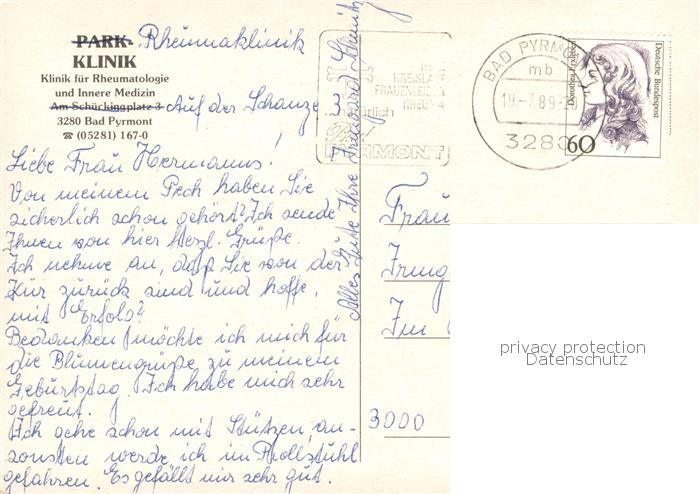 PARK- Rheumaklinik
KLINIK
Klinik für Rheumatologie
und Innere Medizin
Am Schückingplatz 3 Auf der Schanze
3280 Bad Pyrmont
☎ (05281) 167-0
Liebe Frau Hermanns!
Von meinem Pech haben Sie
sicherlich schon gehört? Ich sende
Ihnen von hier herzl. Grüße.
Ich nehme an, daß Sie von der
Kur zurück sind und hoffe,
mit Erfolg?
Bedanken möchte ich mich für
die Blumengrüße zu meinem
Geburtstag. Ich habe mich sehr
gefreut.
Ich gehe schon mit Stützen, an-
sonsten werde ich im Rollstuhl
gefahren. Es gefällt mir sehr gut.
Alles Gute Ihre Irmgard
HERZ
KREISLAUF
FRAUENLEIDEN
RHEUMA
natürlich
Bad
PYRMONT
BAD PYRMONT
mb
19.-7.89
3280
Deutsche Bundespost
60
Frau
Irmg
Im
3000
privacy protection
Datenschutz